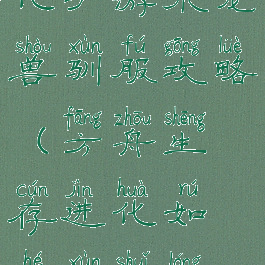 shòu xùn fú gōng lüè
兽驯服攻略
fāng zhōu shēng
(方舟生
cún jìn huà rú
存进化如
hé xùn shuǐ lóng